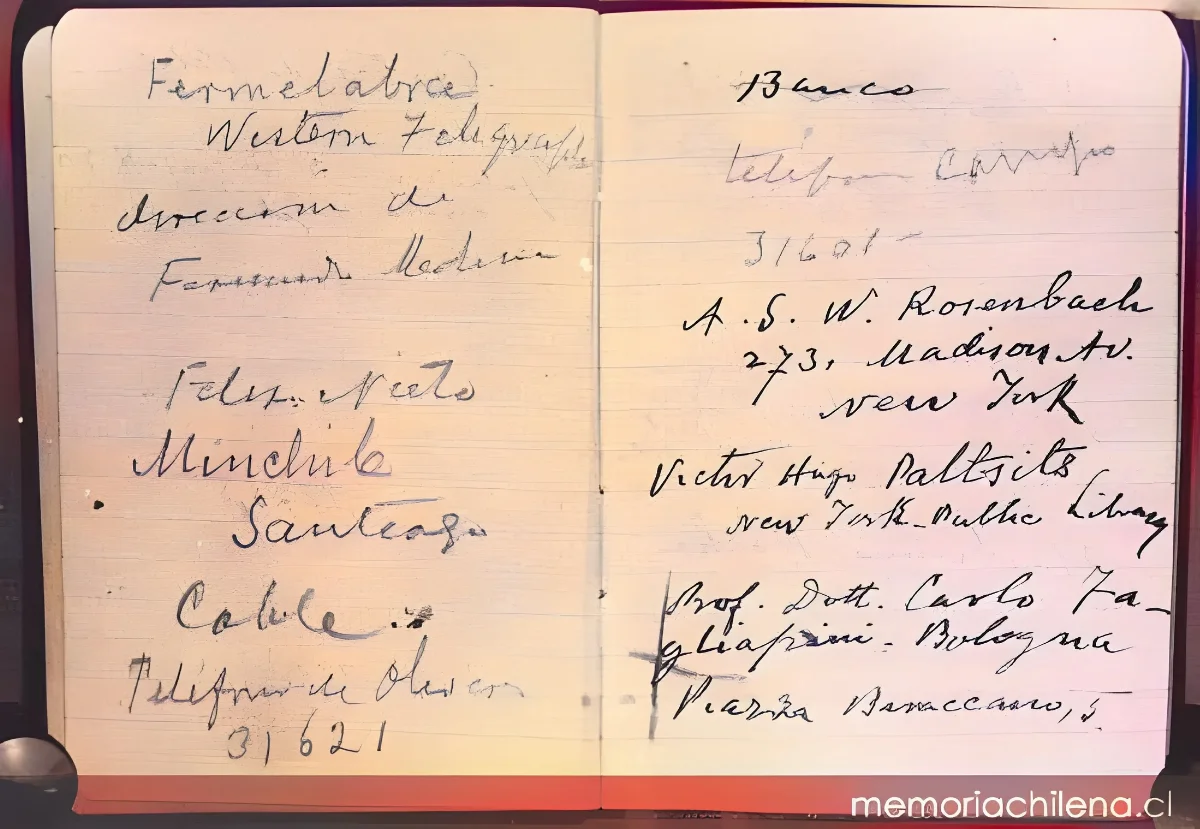 Fermelabre
Western Telegraph
direccion de
Fernando Medina
Felix Nieto
Minchile
Santiago
Cable
Teléfono de
31621
Banco
teléfono
A. S. W. Rosenbach
273, Madison Av.
New York
Victor Hugo Paltsits
New York Public Library
Prof. Dott. Carlo Ta-
gliapini - Bologna
Piazza Baraccano, 5
memoriachilena.cl